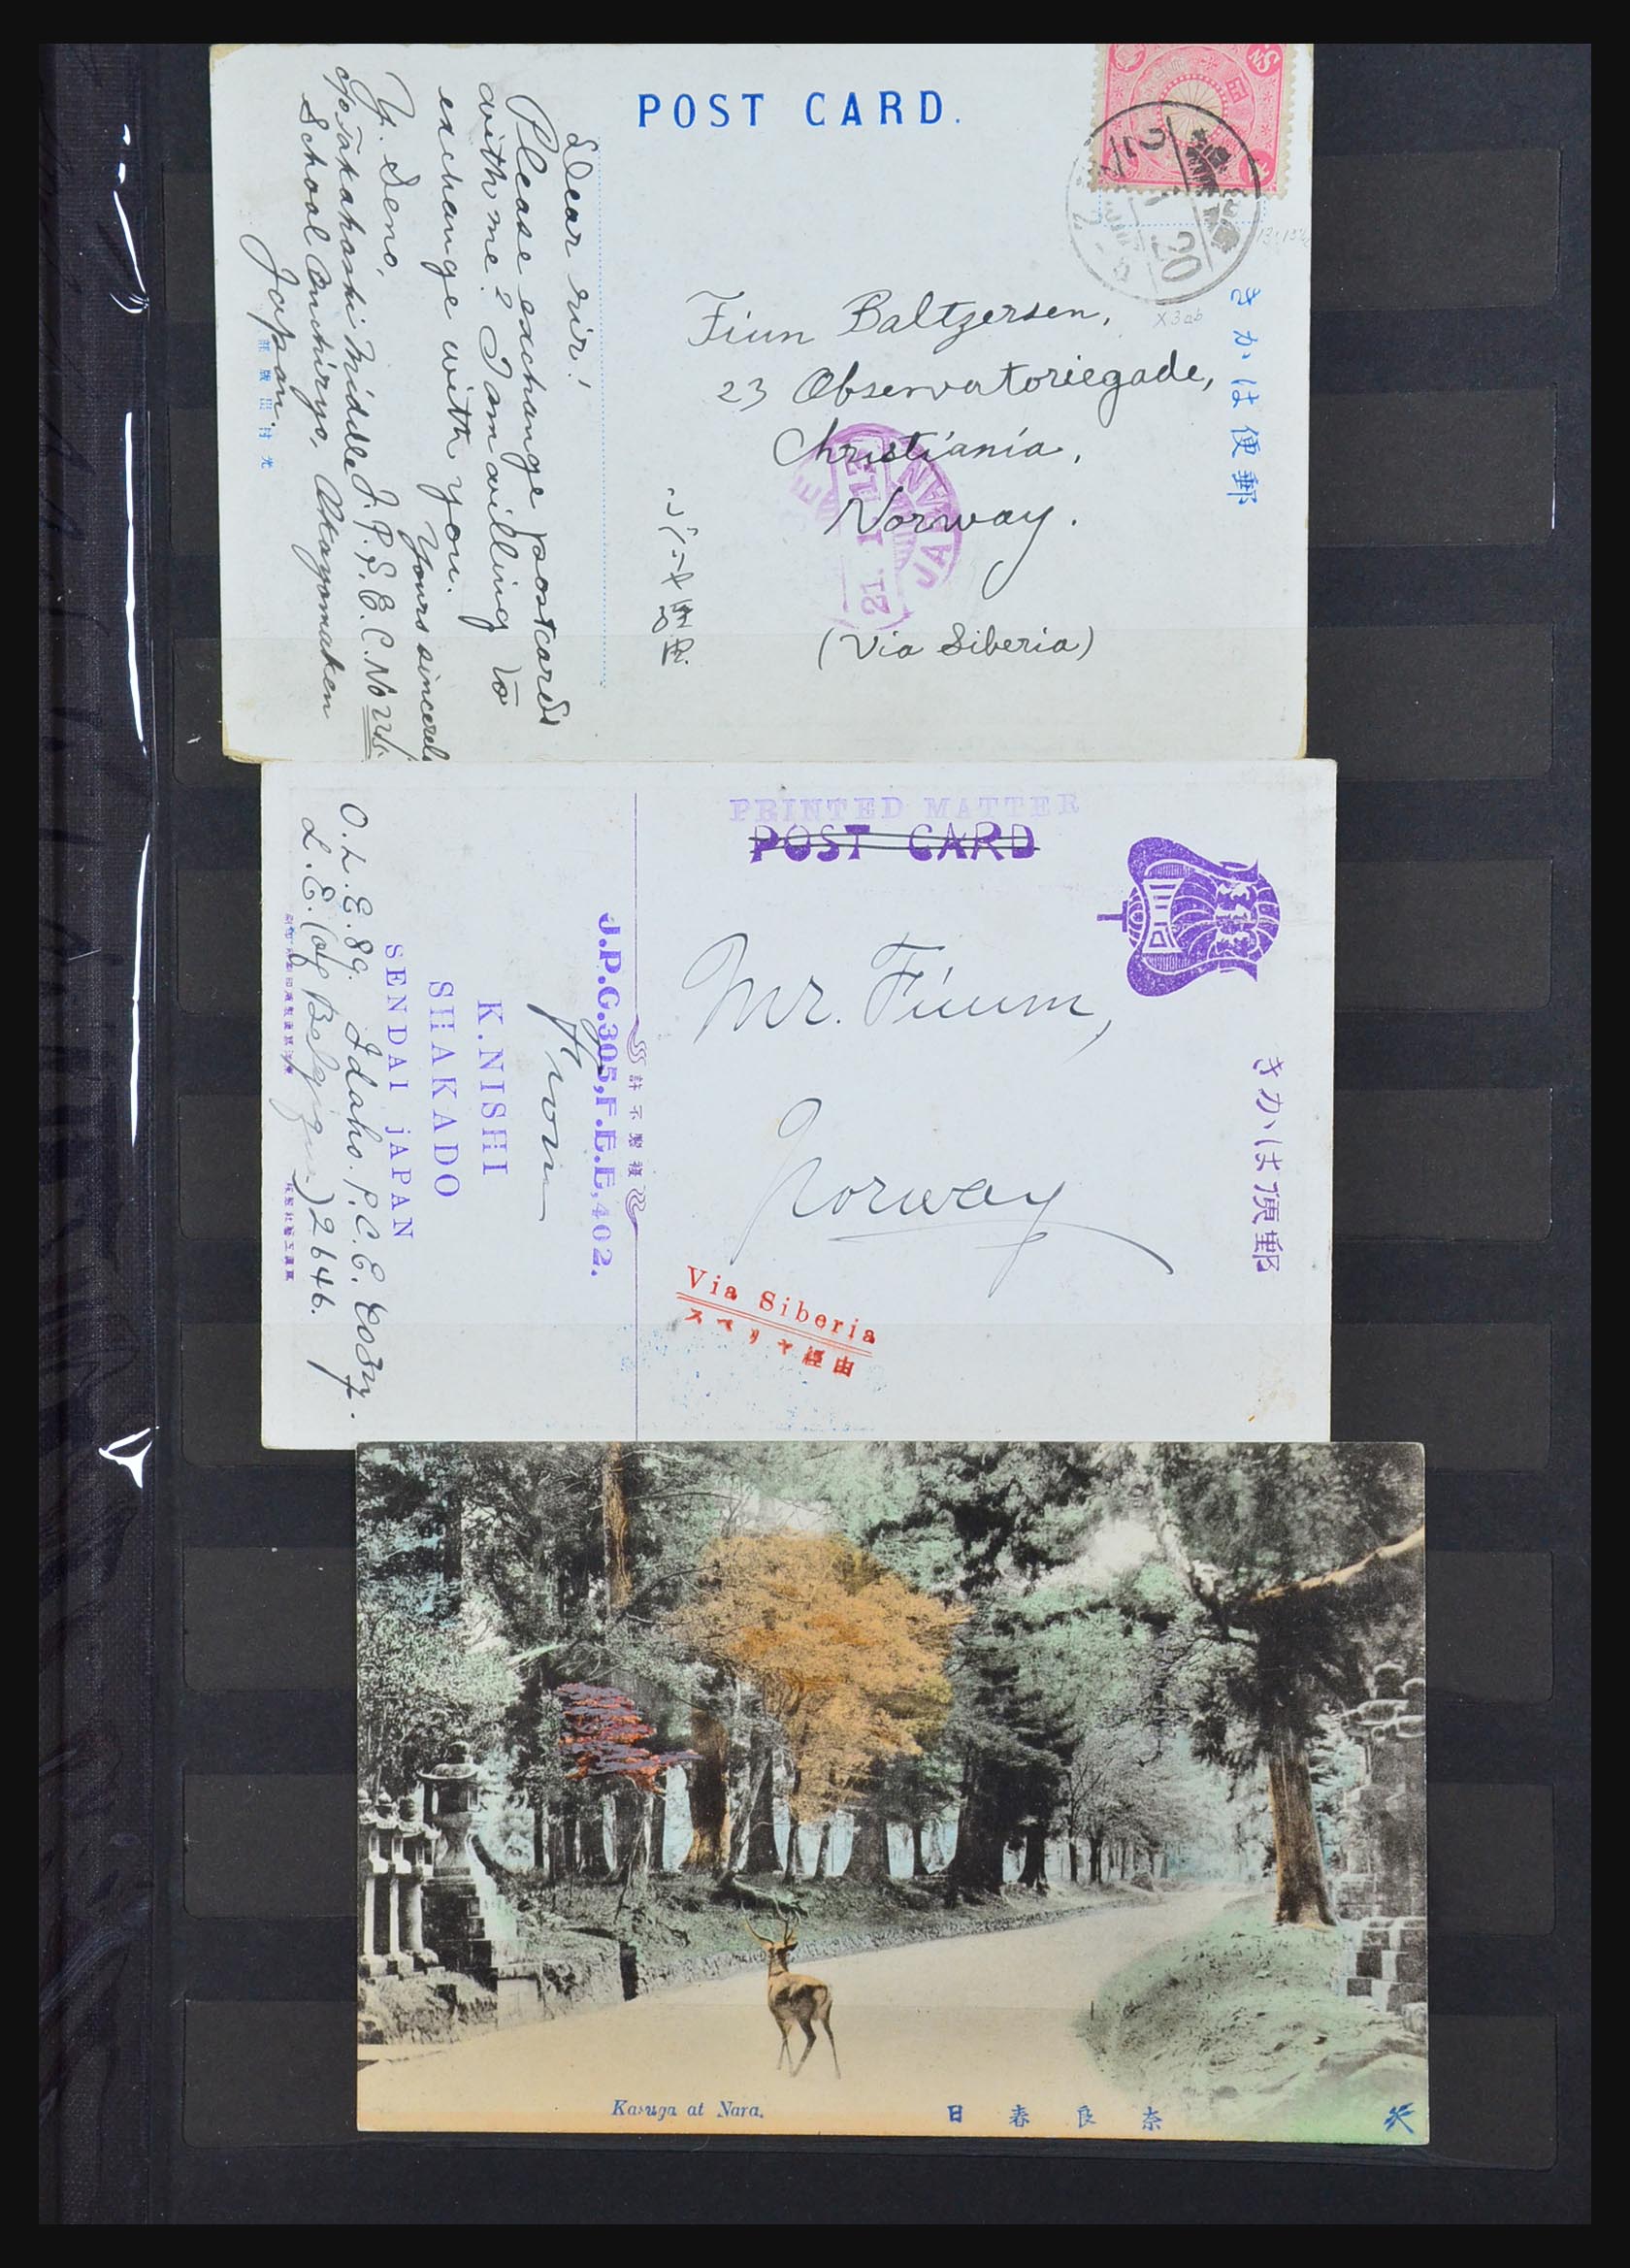 POST CARD.
Dear sir!
Please exchange postcards
with me? I am willing to
exchange with you.
Yours sincerely
Y. Seno,
Ojo Takahashi Middle J.P.S.E.C. No
School Onchiryo, Okayamaken
Japan.
Finn Baltzersen,
23 Observatoriegade,
Christiania,
Norway.
(Via Siberia)
きかは便郵
21.1.12
JAPAN
X3ab
PRINTED MATTER
POST CARD
きかは便郵
Mr. Finn,
Norway
Via Siberia
スベリヤ経由
J.P.C.305,F.E.E,402.
From
K.NISHI
SHAKADO
SENDAI jAPAN
O.L.E.89. Idaho. P.C.E.
L.E. (of Belgique) 2646.
Kasuga at Nara.
日春良奈